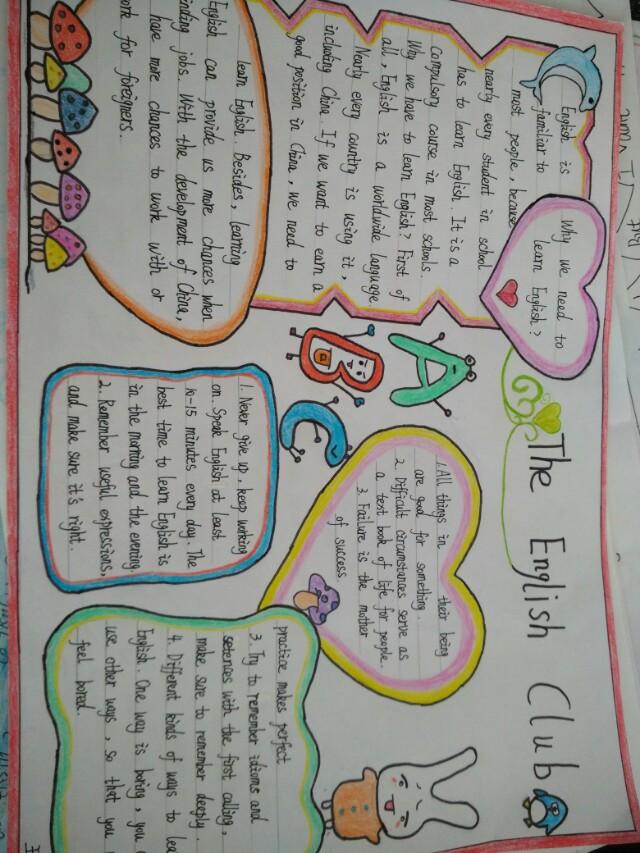 The English Club
Why we need to
learn English?
English is
familiar to
most people, because
nearly every student in school
has to learn English. It is a
compulsory course in most schools.
Why we have to learn English? First of
all, English is a worldwide language
Nearly every country is using it,
including China. If we want to earn a
good position in China, we need to
learn English. Besides, learning
English can provide us more chances when
finding jobs. With the development of China,
have more chances to work with or
work for foreigners.
A
B
C
1. All things in their being
are good for something.
2. Difficult circumstances serve as
a text book of life for people.
3. Failure is the mother
of success.
1. Never give up, keep working
on. Speak English at least
10-15 minutes every day. The
best time to learn English is
in the morning and the evening.
2. Remember useful expressions,
and make sure it's right.
practice makes perfect
3. Try to remember idioms and
setences with the first calling,
make sure to remember deeply.
4. Different kinds of ways to
English. One way is boring, you
use other ways, so that you
feel bored.